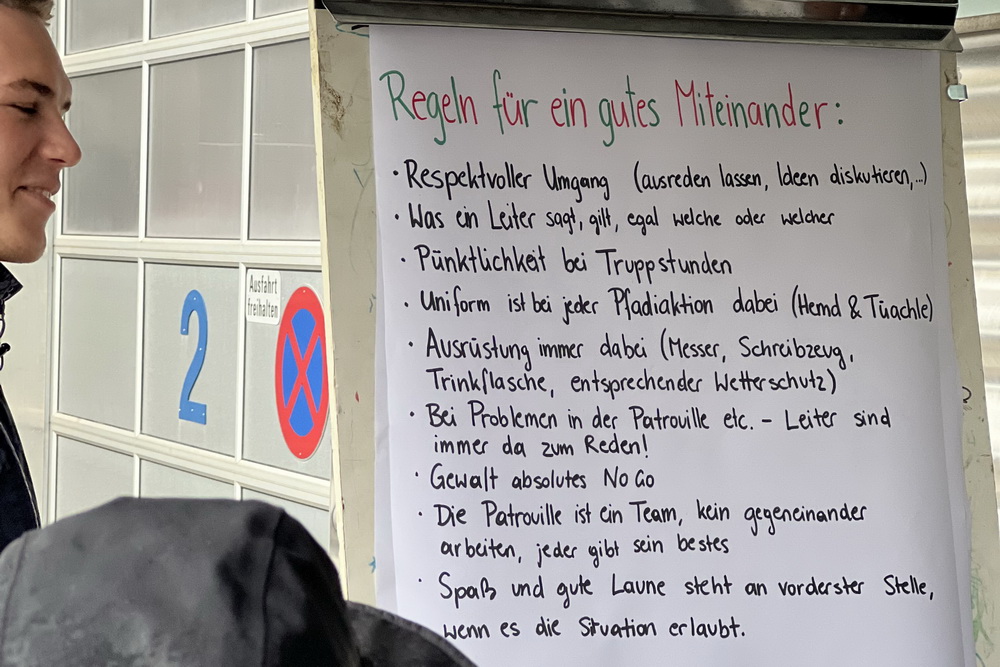 Regeln für ein gutes Miteinander:
· Respektvoller Umgang (ausreden lassen, Ideen diskutieren,...)
· Was ein Leiter sagt, gilt, egal welche oder welcher
· Pünktlichkeit bei Truppstunden
· Uniform ist bei jeder Pfadiaktion dabei (Hemd & Tüachle)
· Ausrüstung immer dabei (Messer, Schreibzeug,
Trinkflasche, entsprechender Wetterschutz)
· Bei Problemen in der Patrouille etc. – Leiter sind
immer da zum Reden!
· Gewalt absolutes No Go
· Die Patrouille ist ein Team, kein gegeneinander
arbeiten, jeder gibt sein bestes
· Spaß und gute Laune steht an vorderster Stelle,
wenn es die Situation erlaubt.
2
Ausfahrt
freihalten